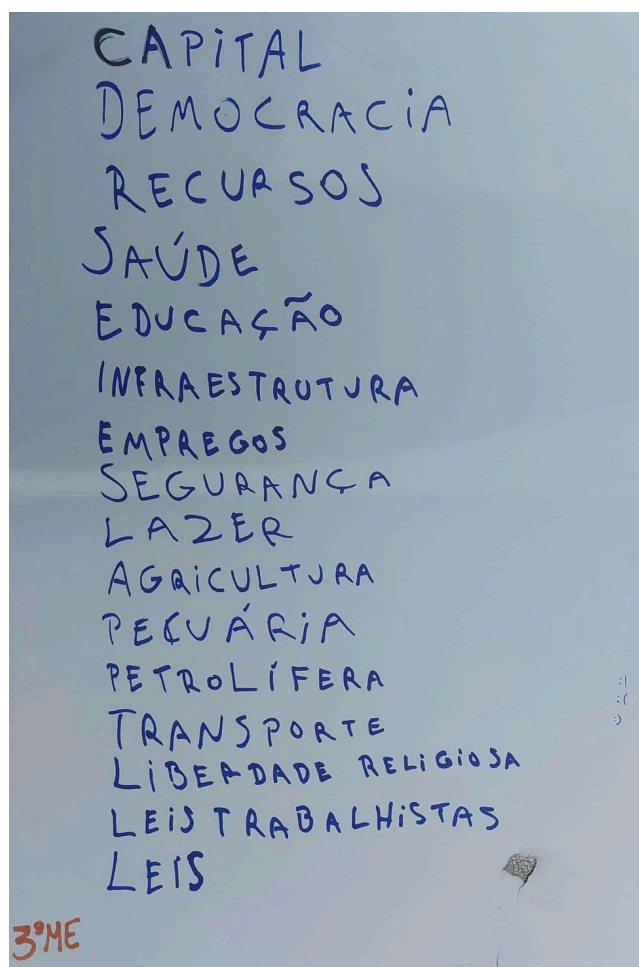 CAPITAL
DEMOCRACIA
RECURSOS
SAÚDE
EDUCAÇÃO
INFRAESTRUTURA
EMPREGOS
SEGURANÇA
LAZER
AGRICULTURA
PEÇUÁRIA
PETROLÍFERA
:|
:(
:)
TRANSPORTE
LIBERDADE RELIGIOSA
LEIS TRABALHISTAS
LEIS
3ºME